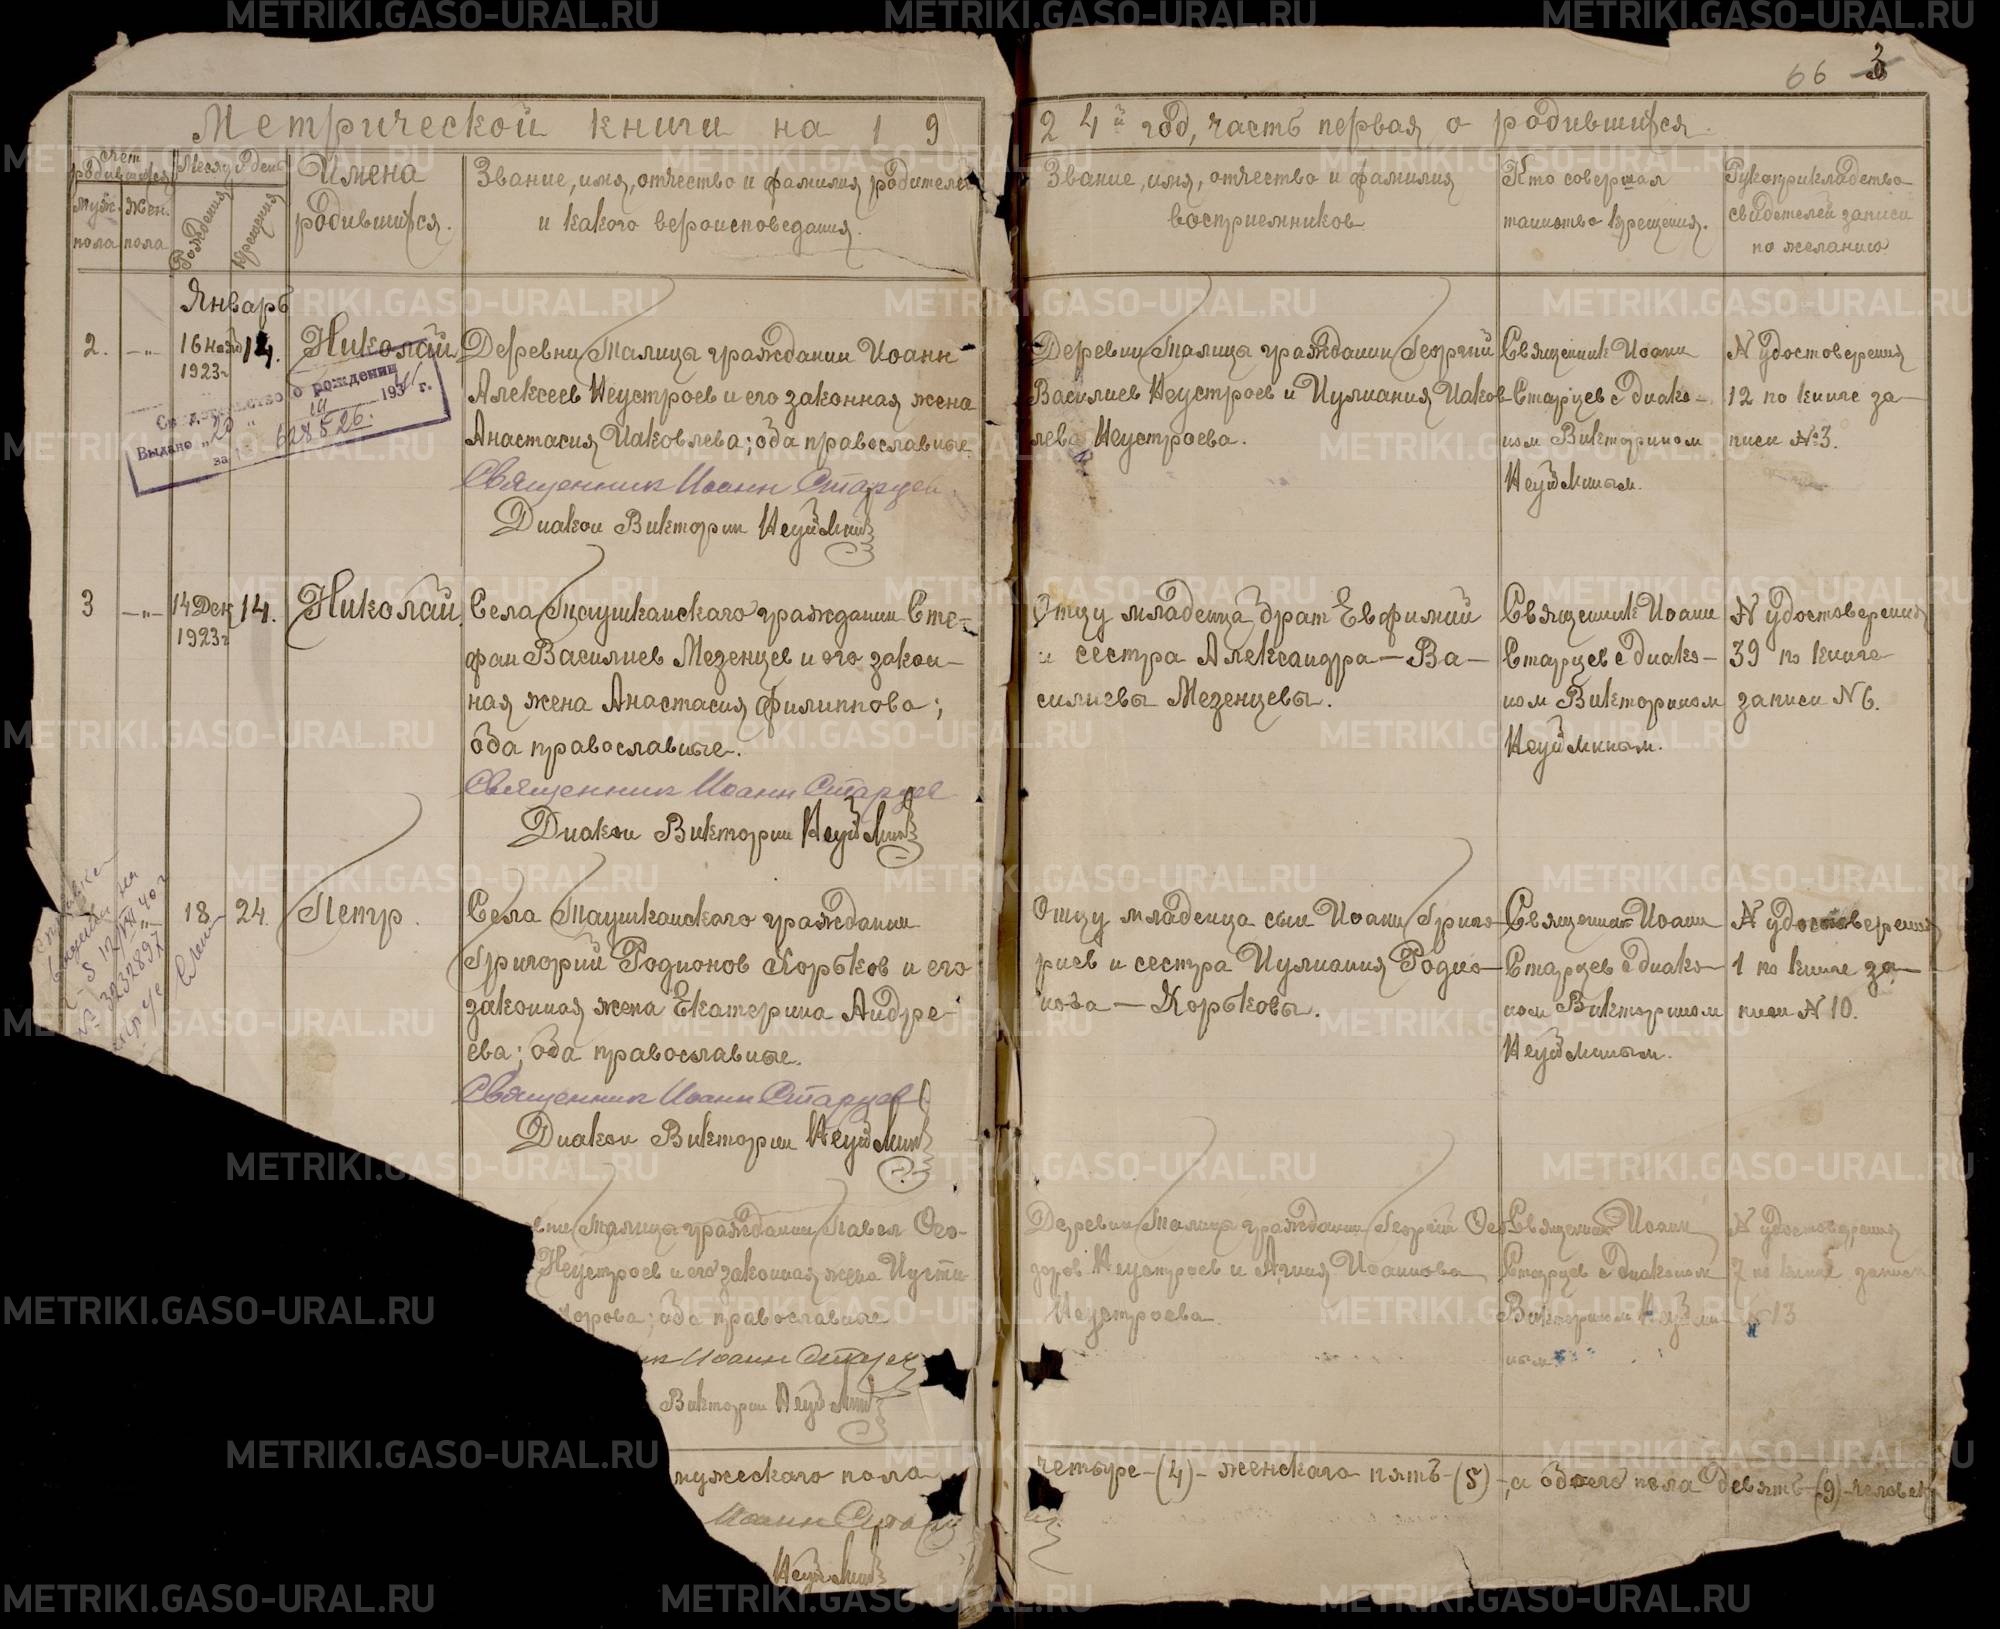 66 3
Метрической книги на 19
24й год, часть первая о родившихся.
Счет родившихся
Месяц и день
Имена родившихся.
Звание, имя, отчество и фамилия родителей
и какого вероисповедания.
муж. пола
жен. пола
Рождения
Крещения
Звание, имя, отчество и фамилия
восприемников
Кто совершал
таинство крещения.
Рукоприкладство
свидетелей записи
по желанию
Январь
2. —„— 16 1923г 14. Николай
Деревни Талицы гражданин Иоанн
Алексеев Неустроев и его законная жена
Анастасия Иаковлева; оба православные
Священник Иоанн Старцев
Диакон Викторин Неуймин
Деревни Талицы гражданин Георгий
Василиев Неустроев и Иулиания Иаков-
лева Неустроева.
Священник Иоанн
Старцев с диако-
ном Викторином
Неуйминым.
N удостоверения
12 по книге за-
писи №3.
Свидетельство о рождении
Выдано „20" 19 1941 г.
за № 628526.
3 —„— 14 Дек 1923г 14. Николай.
Села Таушканского гражданин Сте-
фан Василиев Мезенцев и его закон-
ная жена Анастасия Филиппова;
оба православные.
Священник Иоанн Старцев
Диакон Викторин Неуймин
Отцу младенца брат Евфимий
и сестра Александра — Ва-
силиевы Мезенцевы.
Священник Иоанн
Старцев с диако-
ном Викторином
Неуйминым.
N удостоверения
39 по книге
записи N 6.
18 24. Петр.
Села Таушканского гражданин
Григорий Родионов Хорьков и его
законная жена Екатерина Андре-
ева; оба православные.
Священник Иоанн Старцев
Диакон Викторин Неуймин
Отцу младенца сын Иоанн Григо-
риев и сестра Иулиания Родио-
нова — Хорьковы.
Священник Иоанн
Старцев с диако-
ном Викторином
Неуйминым.
N удостоверения
1 по книге за-
писи N 10.
вни Талицы гражданин Павел Фео-
Неустроев и его законная жена Иусти-
дорова; оба православные
ик Иоанн Старцев
Викторин Неуймин
Деревни Талицы гражданин Георгий Фео-
доров Неустроев и Агния Иоаннова
Неустроева.
Священник Иоанн
Старцев с диаконом
Викторином Неуйми-
ным
N удостоверения
7 по книге записи
N 13
мужеского пола
четыре-(4)- женского пять-(5)-, а обоего пола девять-(9)-человек
Иоанн Старц
Неуймин
METRIKI.GASO-URAL.RU